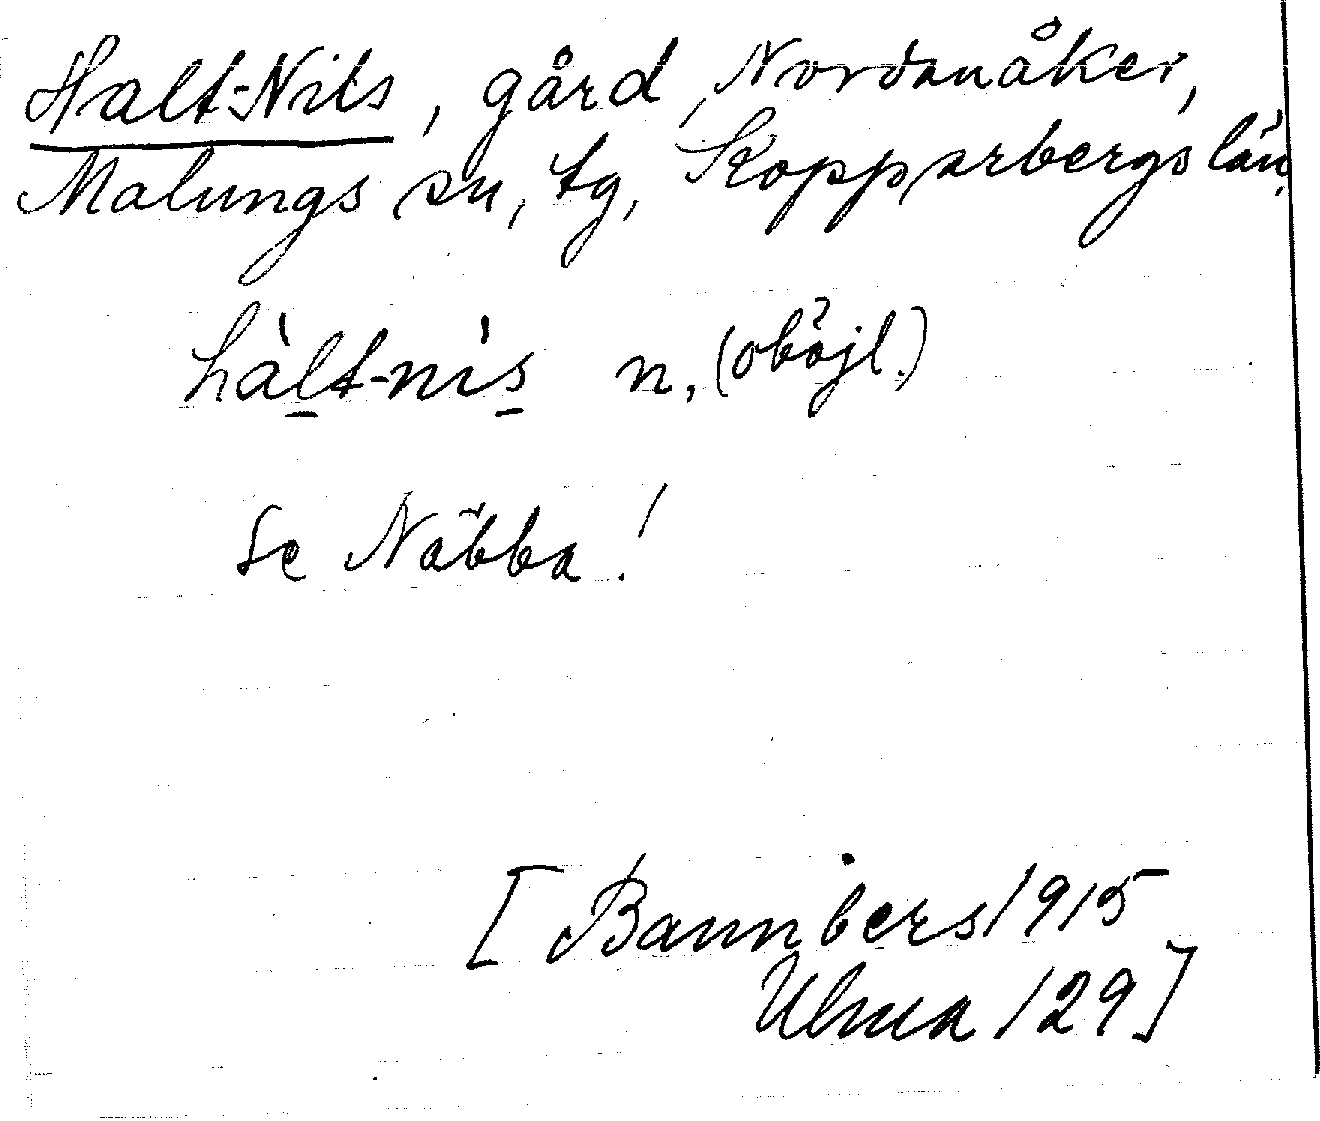 Halt-Nils, gård, Nordanåker,
Malungs sn, tg, Kopparbergs län.
hàlt-nìs n. (oböjl.)
Se Näbba!
[Bannbers 1915
Ulma 129]